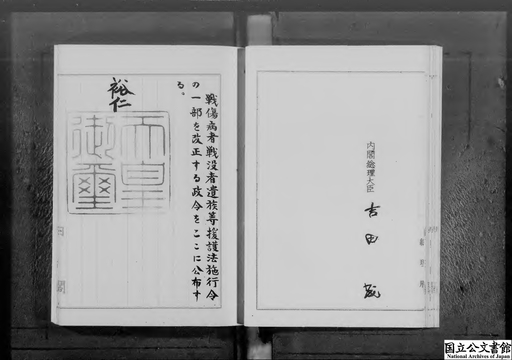 内閣総理大臣
吉田茂
戦傷病者戦没者遺族等援護法施行令
の一部を改正する政令をここに公布す
る。
裕仁
天皇
御璽
国立公文書館
National Archives of Japan